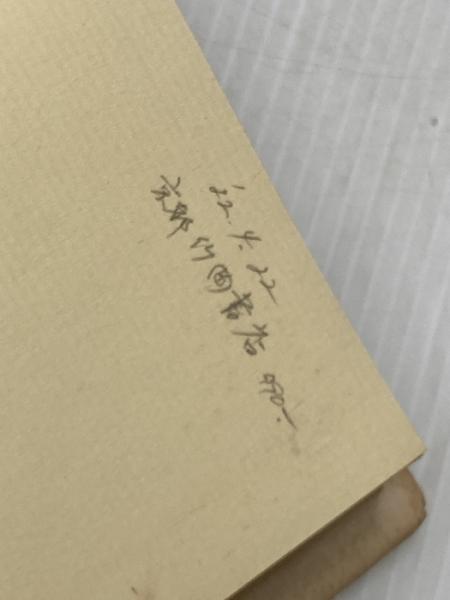 '22.4.22
京都 竹岡書店 990.-